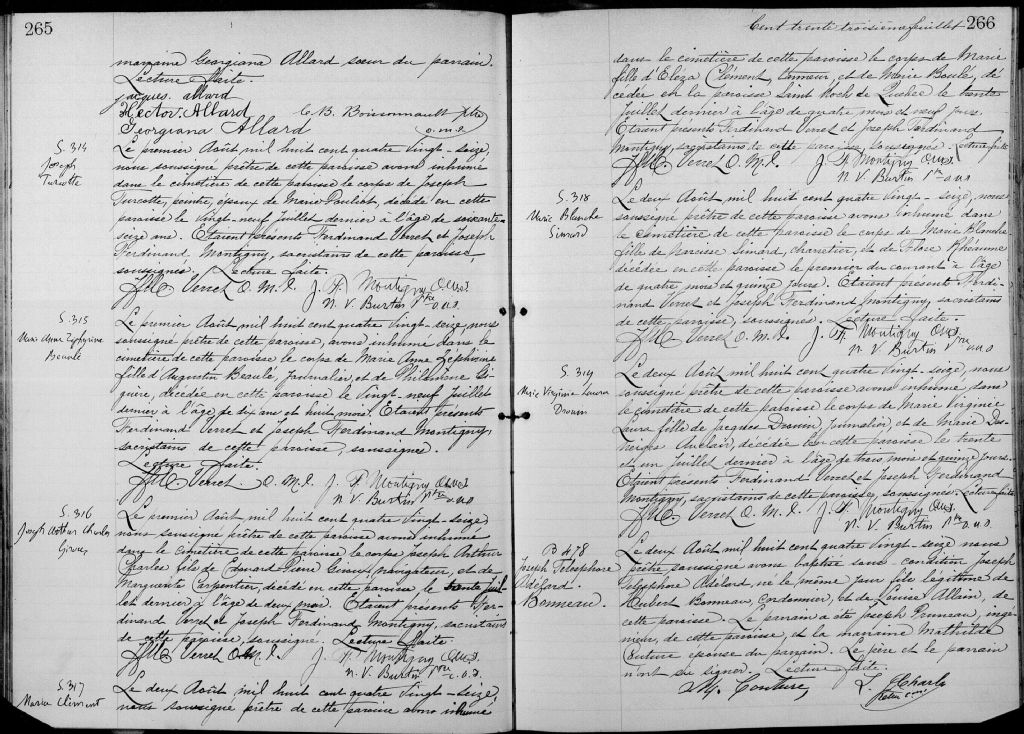 265
marraine Georgiana Allard sœur du parrain.
Lecture faite.
jacques. allard
Hector. Allard
Georgiana Allard
C. B. Boissonnault ptre
o.m.i.
S. 314
Joseph
Turcotte
Le premier Août mil huit cent quatre vingt-seize,
nous soussigné prêtre de cette paroisse avons inhumé
dans le cimetière de cette paroisse le corps de Joseph
Turcotte, peintre, époux de Marie Pouliot, décédé en cette
paroisse le vingt-neuf Juillet dernier à l'âge de soixante-
seize ans. Etaient présents Ferdinand Verret et Joseph
Ferdinand Montigny, sacristains de cette paroisse,
soussignés. Lecture faite.
Verret O. M. I. J. F. Montigny
N. V. Burtin Ptre o.m.i
S. 315
Marie Anna Zéphirine
Beaulé
Le premier Août mil huit cent quatre vingt-seize, nous
soussigné prêtre de cette paroisse, avons inhumé dans le
cimetière de cette paroisse le corps de Marie Anne Zéphirine
fille d'Augustin Beaulé, journalier, et de Philomène Gi-
guère, décédée en cette paroisse le vingt-neuf juillet
dernier à l'âge de dix ans et huit mois. Etaient présents
Ferdinand Verret et Joseph Ferdinand Montigny,
sacristains de cette paroisse, soussignés.
Lecture faite.
Verret O. M. I. J. F. Montigny
N. V. Burtin Ptre o.m.i
S. 316
Joseph Arthur Charles
Giroux
Le premier Août mil huit cent quatre vingt-seize,
nous soussigné prêtre de cette paroisse avons inhumé
dans le cimetière de cette paroisse le corps joseph Arthur
Charles fils de Edouard Pierre Giroux, navigateur, et de
Marguerite Carpentier, décédé en cette paroisse le trente juil-
let dernier à l'âge de deux mois. Etaient présents Fer-
dinand Verret et Joseph Ferdinand Montigny, sacristains
de cette paroisse, soussigné. Lecture faite.
Verret O. M. I. J. F. Montigny
N. V. Burtin Ptre o.m.i.
S. 317
Maria Clément
Le deux Août mil huit cent quatre vingt-seize,
nous soussigné prêtre de cette paroisse avons inhumé
Cent trente troisième feuillet 266
dans le cimetière de cette paroisse le corps de Marie
fille d'Eleza Clément, tanneur, et de Marie Boulé, dé-
cédée en la paroisse Saint Roch de Québec le trente
Juillet dernier à l'âge de quatre mois et neuf jours.
Etaient présents Ferdinand Verret et Joseph Ferdinand
Montigny, sacristains de cette paroisse, soussignés. Lecture faite
Verret O. M. I. J. F. Montigny
N. V. Burtin Ptre o.m.i
S. 318
Marie Blanche
Simard
Le deux Août mil huit cent quatre vingt-seize, nous
soussigné prêtre de cette paroisse avons inhumé dans
le cimetière de cette paroisse le corps de Marie Blanche
fille de Narcisse Simard, charretier, et de Flore Rhéaume
décédée en cette paroisse le premier du courant à l'âge
de quatre mois et quinze jours. Etaient présents Ferdi-
nand Verret et Joseph Ferdinand Montigny, sacristains
de cette paroisse, soussignés. Lecture faite.
Verret O. M. I. J. F. Montigny
N. V. Burtin Ptre o.m.i
S. 319
Marie Virginie Laura
Drouin
Le deux Août mil huit cent quatre vingt-seize, nous
soussigné prêtre de cette paroisse avons inhumé dans
le cimetière de cette paroisse le corps de Marie Virginie
Laura fille de Jacques Drouin, journalier, et de Marie Des-
neiges Auclair, décédée en cette paroisse le trente
et un Juillet dernier à l'âge de trois mois et quinze jours.
Etaient présents Ferdinand Verret et Joseph Ferdinand
Montigny, sacristains de cette paroisse, soussignés. Lecture faite
Verret O. M. I. J. F. Montigny
N. V. Burtin Ptre o.m.i.
B 478
Joseph Télesphore
Adélard
Bonneau.
Le deux Août mil huit cent quatre vingt-seize nous
prêtre soussigné avons baptisé sous condition Joseph
Télesphore Adélard, né le même jour fils légitime de
Hubert Bonneau, Cordonnier, et de Louise Allain, de
cette paroisse. Le parrain a été Joseph Pruneau, ingé-
nieur, de cette paroisse, et la marraine Mathilde
Couture épouse du parrain. Le père et le parrain
n'ont su signer. Lecture faite.
M. Couture L.